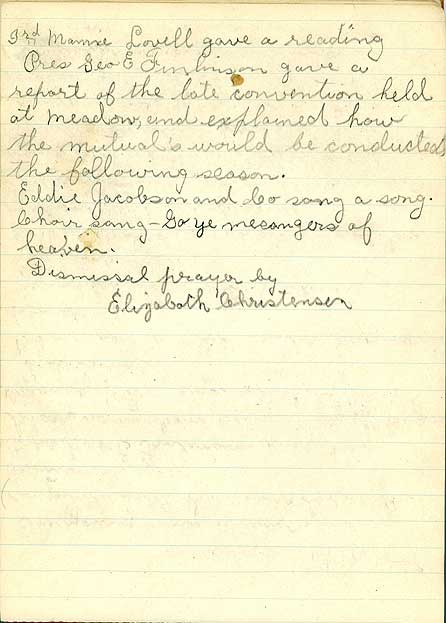 3rd Mamie Lovell gave a reading
Pres Geo E Finlinson gave a
report of the late convention held
at Meadow, and explained how
the mutual's would be conducted
the following season.
Eddie Jacobson and Co sang a song.
Choir sang - Go ye mesangers of
heaven.
Dismissal prayer by
Elizabeth Christensen